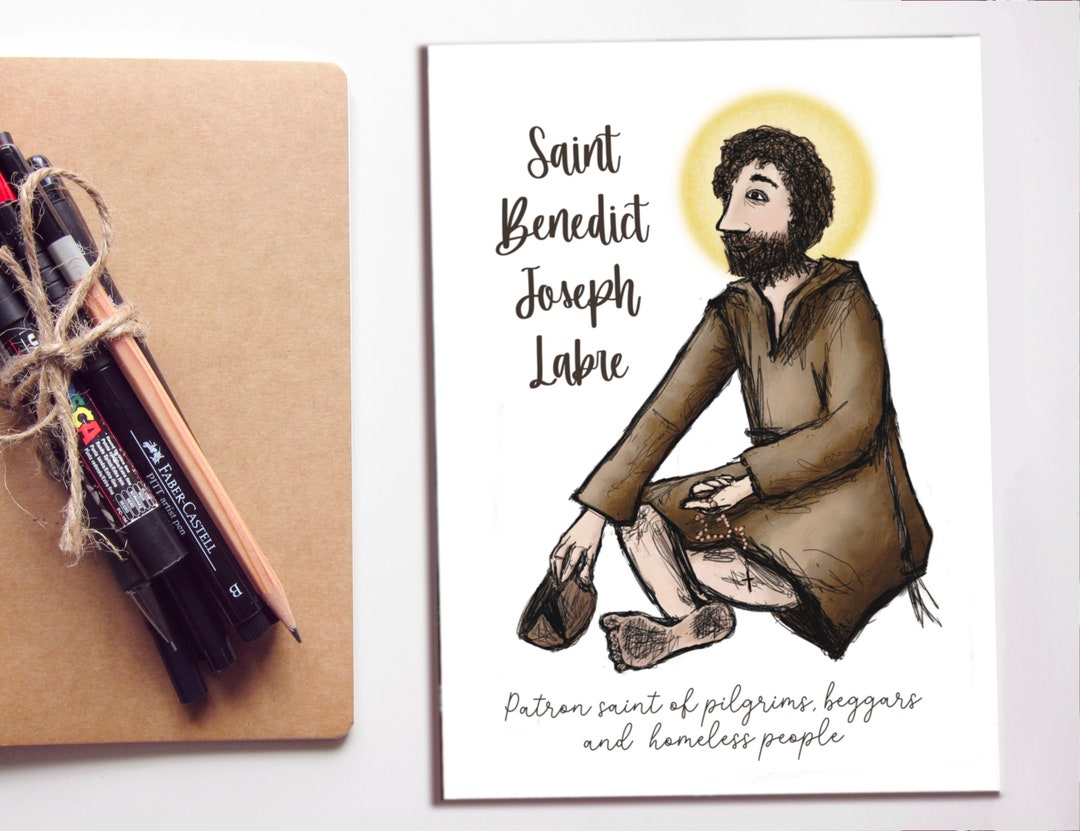 Saint
Benedict
Joseph
Labre
Patron saint of pilgrims, beggars
and homeless people
FABER-CASTELL
PITT artist pen
B